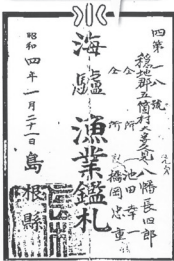 四第一八號
穏地郡五箇村大字久見 八幡長四郎
仝 所 池田幸一
仝 所 橋岡忠重
海驢漁業鑑札
昭和四年一月二十一日 島根縣